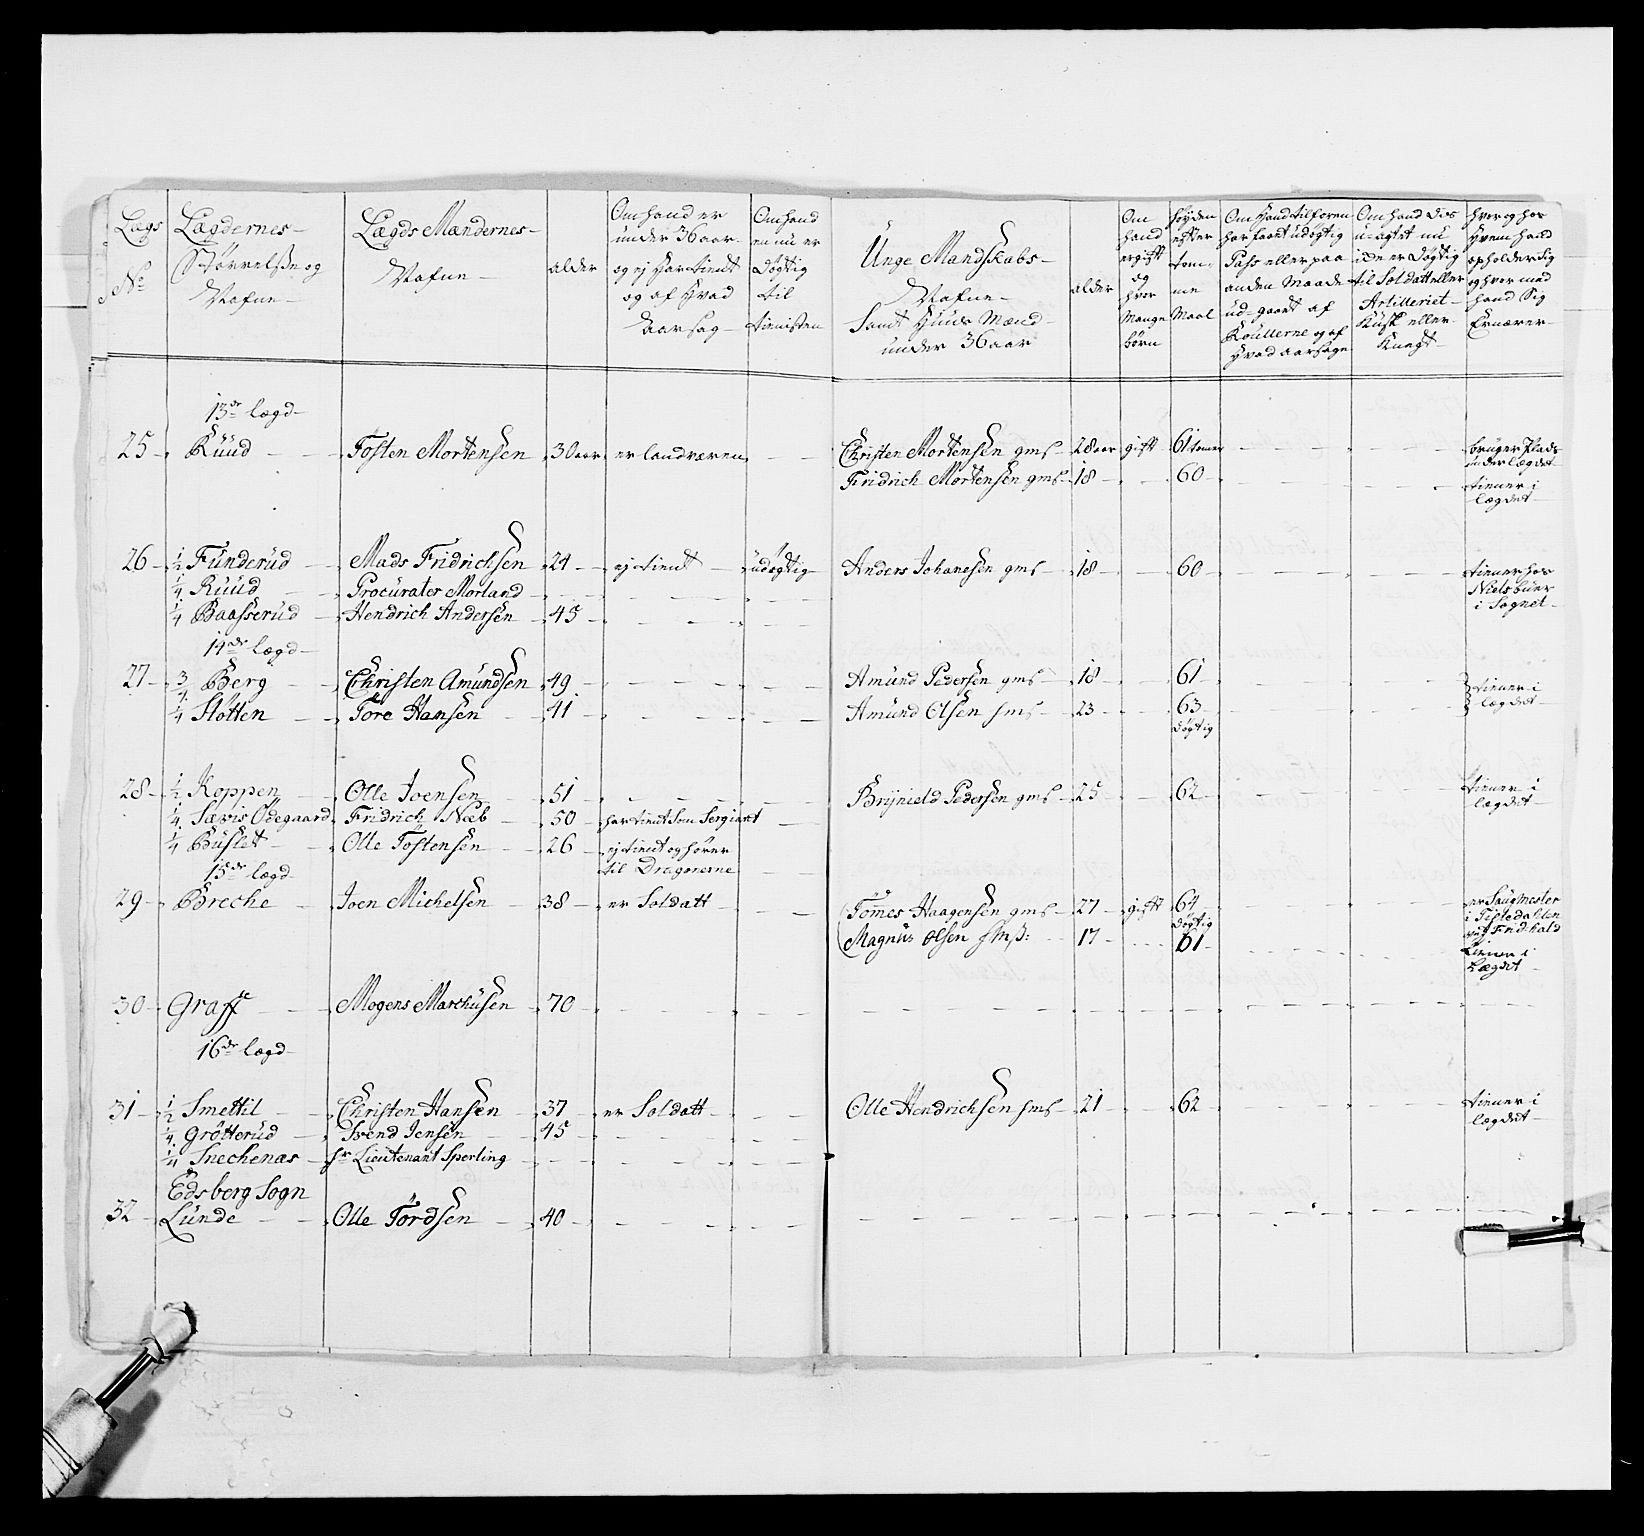 Lægs No
Lægdernes Størrelse og Nafne
Lægds Mændernes Nafne
alder
Om hand er under 36 aar og ej har tient og af hvad aarsag
Om hand en nu er døgtig til tienisten
Unge Mandskabs Nafne Samt Huus Mænd under 36 aar
alder
Om hand er gift og hvor mange børn
høyden efter tomme Maal
Om hand tilforen har faaet udøgtig Pass eller paa anden Maade ud-gaaet af Roullerne og af hvad aarsage
Om hand dis u-agtet nu ide er døgtig til Soldatt eller Artilleriet Kusk eller Knegt
hvor og hos hvem hand opholder sig og hvor med hand Sig Ernærer
13de lægd
25 Ruud Tosten Mortensen 30 aar er landværen Christen Mortensen gms 28 aar gift 61 tomer bruger Plads under lægdet
Fridrich Mortensen gms 18 60 tiener i lægdet
26 1/2 Funderud Mads Fridrichsen 24 ej tient udøgtig Anders Johanesen gms 18 60 tiener hos Niels buer i Sognet
1/4 Ruud Procurater Morland
1/4 Baasserud Hendrich Andersen 45
14de lægd
27 3/4 Berg Christen Amundsen 49 Amund Pedersen gms 18 61 tiener i lægdet
1/4 Slotten Tore Hansen 41 Amund Olsen sms 23 63 døgtig
28 1/2 Koppen Olle Joensen 51 Brynield Pedersen gms 25 62 tiener i lægdet
1/4 Sævis Ødegaard Fridrich Næb 50 har tient Som Sergiant
1/4 Buslet Olle Tostensen 26 ej tient og hører til Dragonerne
15de lægd
29 Breche Joen Michelsen 38 er Soldatt Tomes Haagensen gms 27 gift 64 døgtig er Saugmester i Tistedahlen ved Fridhald
Magnus Olsen sms: 17 61 tiener i Lægdet
30 Graff Mogens Marchusen 70
16de lægd
31 1/2 Smettil Christen Hansen 37 er Soldatt Olle Hendrichsen sms 21 62 tiener i lægdet
1/4 Grøtterud Svend Jensen 45
1/4 Snechenæs hr Lieutenant Sperling
Edsberg Sogn
32 Lunde Olle Tordsen 40